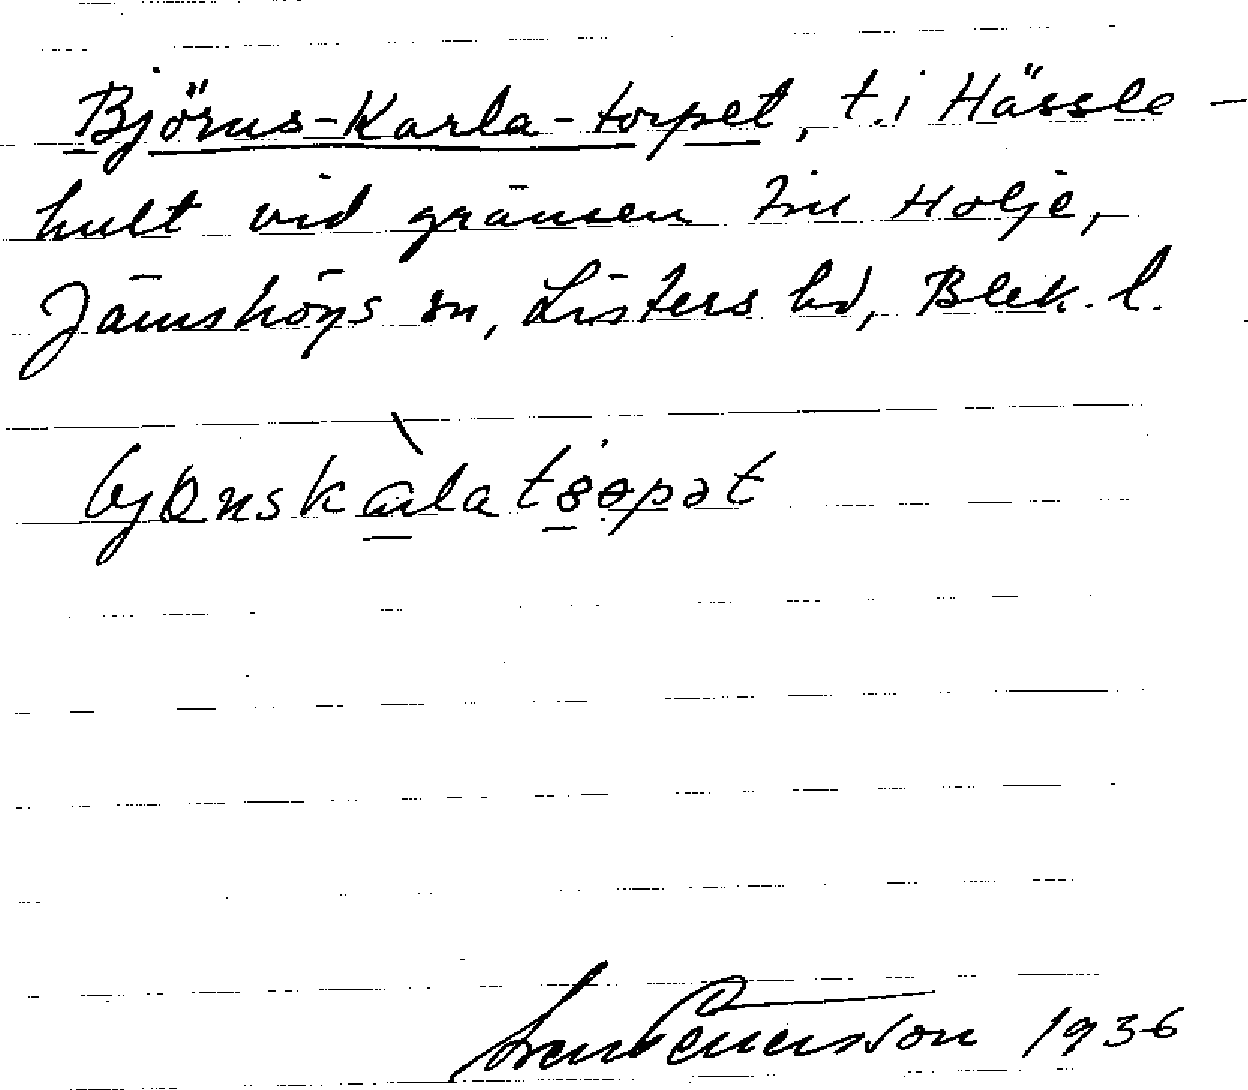 Björns-Karla-torpet, t. i Hässle-
hult vid gränsen till Holje,
Jämshögs sn, Listers hd, Blek. l.
1936